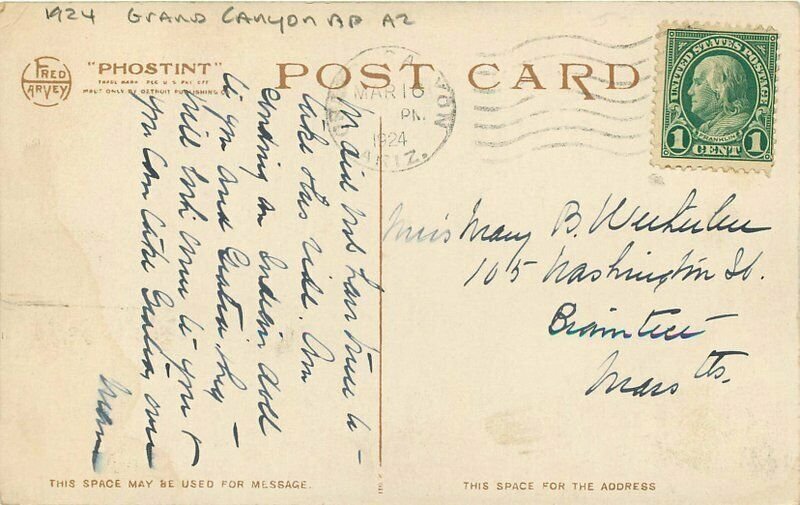 1924 GRAND CANYON RP AZ
FRED HARVEY
"PHOSTINT"
TRADE MARK REG U.S. PAT. OFF.
MADE ONLY BY DETROIT PUBLISHING CO.
POST CARD
MAR 16
PM
1924
ARIZ.
UNITED STATES POSTAGE
FRANKLIN
1 CENT 1
Will not have time to
take this ride. Am
sending an Indian doll
to you and
will both come to you &
you can take
Miss Mary B.
105 Washington St.
Braintree
Mass
THIS SPACE MAY BE USED FOR MESSAGE.
THIS SPACE FOR THE ADDRESS